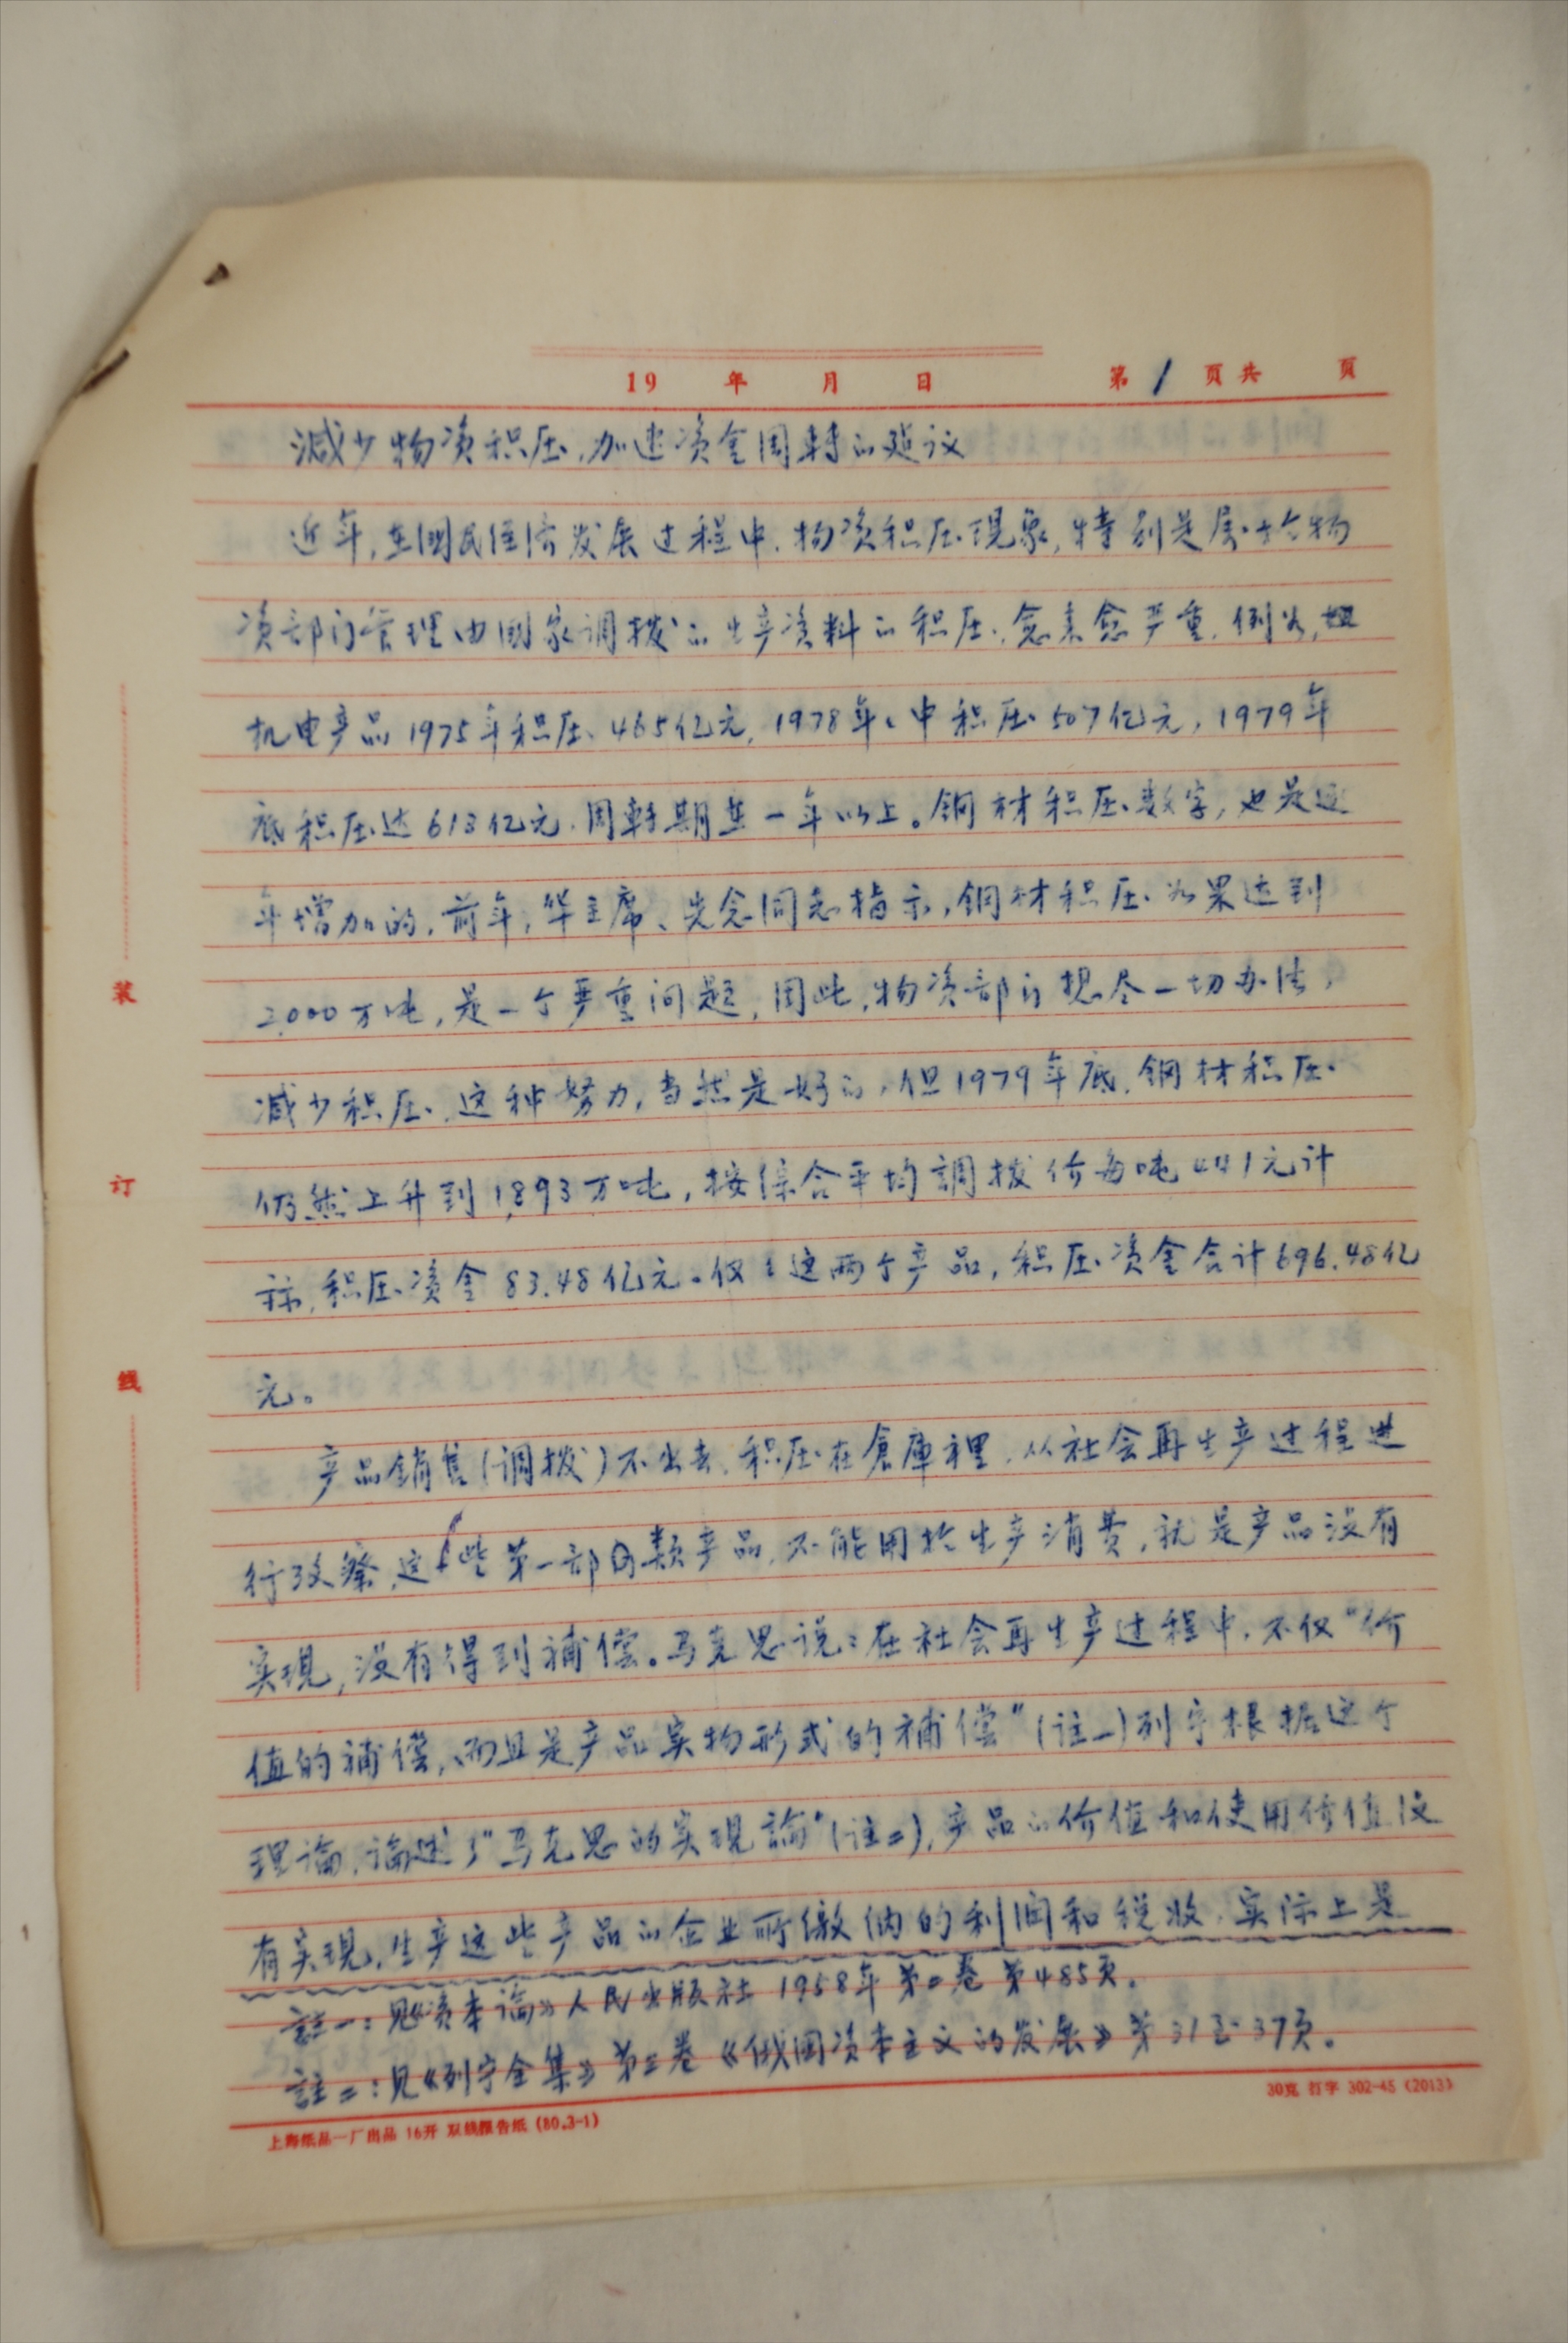 19 年 月 日 第1页共 页
减少物资积压,加速资金周转的建议
近年,在国民经济发展过程中,物资积压现象,特别是属于物
资部门管理由国家调拨的生产资料的积压,愈来愈严重,例如,
机电产品1975年积压465亿元,1978年中积压507亿元,1979年
底积压达613亿元,周转期在一年以上。钢材积压数字,也是逐
年增加的,前年,华主席、先念同志指示,钢材积压如果达到
2,000万吨,是一个严重问题,因此,物资部门想尽一切办法,
减少积压,这种努力,当然是好的,但1979年底,钢材积压
仍然上升到1,893万吨,按综合平均調拨价每吨441元计
标,积压资金83.48亿元。仅这两个产品,积压资金合计696.48亿
元。
产品销售(调拨)不出去,积压在倉庫裡,从社会再生产过程进
行攷察,这些第一部类产品,不能用於生产消费,就是产品没有
实現,没有得到補偿。马克思说:在社会再生产过程中,不仅"价
值的補偿,而且是产品实物形式的補偿"(註一)列宁根据这个
理论,论述了"马克思的实现論"(註二),产品的价值和使用价值没
有实現,生产这些产品的企业所缴纳的利润和税收,实际上是
註一:见《资本论》人民出版社1958年第二卷第485页。
註二:见《列宁全集》第三卷《俄国资本主义的发展》第31至37页。
装
订
线
上海纸品一厂出品 16开 双线报告纸(80.3-1)
30克 打字 302-45(2013)